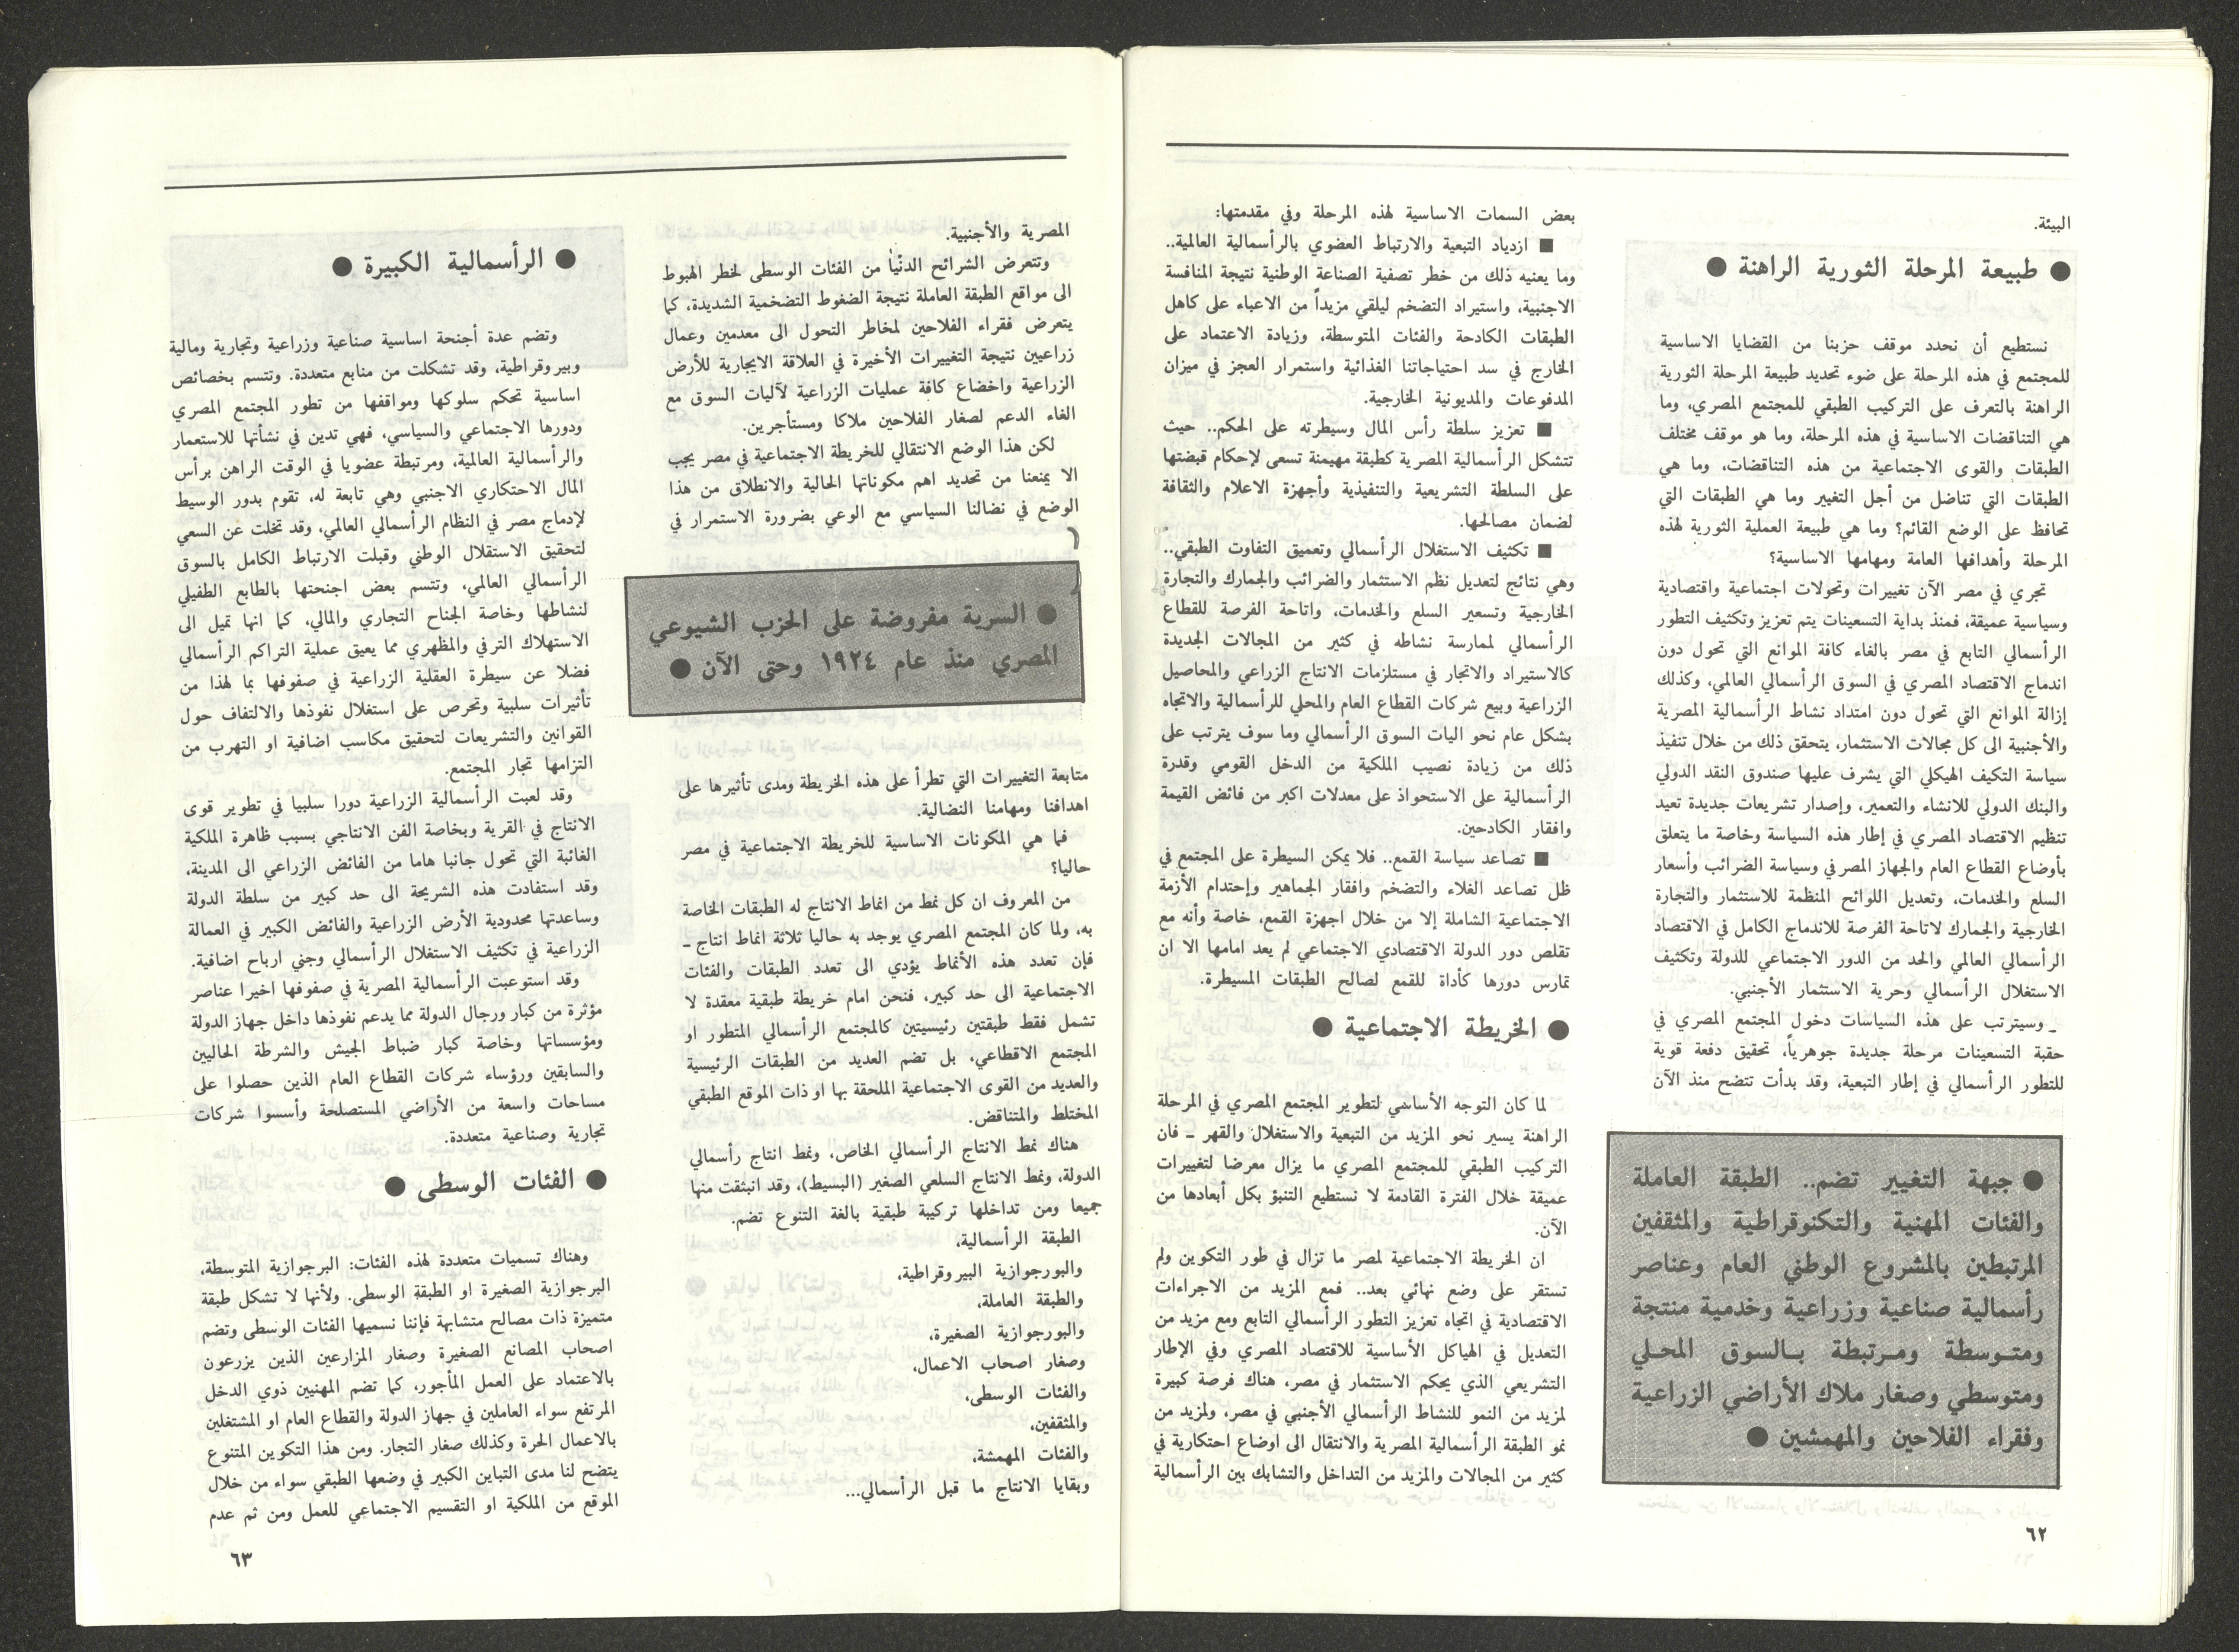 البيئة.
● طبيعة المرحلة الثورية الراهنة ●
نستطيع أن نحدد موقف حزبنا من القضايا الاساسية
للمجتمع في هذه المرحلة على ضوء تحديد طبيعة المرحلة الثورية
الراهنة بالتعرف على التركيب الطبقي للمجتمع المصري، وما
هي التناقضات الاساسية في هذه المرحلة، وما هو موقف مختلف
الطبقات والقوى الاجتماعية من هذه التناقضات، وما هي
الطبقات التي تناضل من أجل التغيير وما هي الطبقات التي
تحافظ على الوضع القائم؟ وما هي طبيعة العملية الثورية لهذه
المرحلة وأهدافها العامة ومهامها الاساسية؟
تجري في مصر الآن تغييرات وتحولات اجتماعية واقتصادية
وسياسية عميقة، فمنذ بداية التسعينات يتم تعزيز وتكثيف التطور
الرأسمالي التابع في مصر بالغاء كافة الموانع التي تحول دون
اندماج الاقتصاد المصري في السوق الرأسمالي العالمي، وكذلك
إزالة الموانع التي تحول دون امتداد نشاط الرأسمالية المصرية
والأجنبية الى كل مجالات الاستثمار، يتحقق ذلك من خلال تنفيذ
سياسة التكيف الهيكلي التي يشرف عليها صندوق النقد الدولي
والبنك الدولي للانشاء والتعمير، وإصدار تشريعات جديدة تعيد
تنظيم الاقتصاد المصري في إطار هذه السياسة وخاصة ما يتعلق
بأوضاع القطاع العام والجهاز المصرفي وسياسة الضرائب وأسعار
السلع والخدمات، وتعديل اللوائح المنظمة للاستثمار والتجارة
الخارجية والجمارك لاتاحة الفرصة للاندماج الكامل في الاقتصاد
الرأسمالي العالمي والحد من الدور الاجتماعي للدولة وتكثيف
الاستغلال الرأسمالي وحرية الاستثمار الأجنبي.
ـ وسيترتب على هذه السياسات دخول المجتمع المصري في
حقبة التسعينات مرحلة جديدة جوهرياً، تحقيق دفعة قوية
للتطور الرأسمالي في إطار التبعية، وقد بدأت تتضح منذ الآن
● جبهة التغيير تضم.. الطبقة العاملة
والفئات المهنية والتكنوقراطية والمثقفين
المرتبطين بالمشروع الوطني العام وعناصر
رأسمالية صناعية وزراعية وخدمية منتجة
ومتـوسطة ومـرتبطة بـالسوق المحـلي
ومتوسطي وصغار ملاك الأراضي الزراعية
وفقراء الفلاحين والمهمشين ●
٦٢
بعض السمات الاساسية لهذه المرحلة وفي مقدمتها:
■ ازدياد التبعية والارتباط العضوي بالرأسمالية العالمية..
وما يعنيه ذلك من خطر تصفية الصناعة الوطنية نتيجة المنافسة
الاجنبية، واستيراد التضخم ليلقي مزيداً من الاعباء على كاهل
الطبقات الكادحة والفئات المتوسطة، وزيادة الاعتماد على
الخارج في سد احتياجاتنا الغذائية واستمرار العجز في ميزان
المدفوعات والمديونية الخارجية.
■ تعزيز سلطة رأس المال وسيطرته على الحكم.. حيث
تتشكل الرأسمالية المصرية كطبقة مهيمنة تسعى لإحكام قبضتها
على السلطة التشريعية والتنفيذية وأجهزة الاعلام والثقافة
لضمان مصالحها.
■ تكثيف الاستغلال الرأسمالي وتعميق التفاوت الطبقي..
وهي نتائج لتعديل نظم الاستثمار والضرائب والجمارك والتجارة
الخارجية وتسعير السلع والخدمات، واتاحة الفرصة للقطاع
الرأسمالي لممارسة نشاطه في كثير من المجالات الجديدة
كالاستيراد والاتجار في مستلزمات الانتاج الزراعي والمحاصيل
الزراعية وبيع شركات القطاع العام والمحلي للرأسمالية والاتجاه
بشكل عام نحو اليات السوق الرأسمالي وما سوف يترتب على
ذلك من زيادة نصيب الملكية من الدخل القومي وقدرة
الرأسمالية على الاستحواذ على معدلات اكبر من فائض القيمة
وافقار الكادحين.
■ تصاعد سياسة القمع.. فلا يمكن السيطرة على المجتمع في
ظل تصاعد الغلاء والتضخم وافقار الجماهير وإحتدام الأزمة
الاجتماعية الشاملة إلا من خلال اجهزة القمع، خاصة وأنه مع
تقلص دور الدولة الاقتصادي الاجتماعي لم يعد امامها الا ان
تمارس دورها كأداة للقمع لصالح الطبقات المسيطرة.
● الخريطة الاجتماعية ●
لما كان التوجه الأساسي لتطوير المجتمع المصري في المرحلة
الراهنة يسير نحو المزيد من التبعية والاستغلال والقهر ـ فان
التركيب الطبقي للمجتمع المصري ما يزال معرضا لتغييرات
عميقة خلال الفترة القادمة لا نستطيع التنبؤ بكل أبعادها من
الآن.
ان الخريطة الاجتماعية لمصر ما تزال في طور التكوين ولم
تستقر على وضع نهائي بعد.. فمع المزيد من الاجراءات
الاقتصادية في اتجاه تعزيز التطور الرأسمالي التابع ومع مزيد من
التعديل في الهياكل الأساسية للاقتصاد المصري وفي الإطار
التشريعي الذي يحكم الاستثمار في مصر، هناك فرصة كبيرة
لمزيد من النمو للنشاط الرأسمالي الأجنبي في مصر، ولمزيد من
نمو الطبقة الرأسمالية المصرية والانتقال الى اوضاع احتكارية في
كثير من المجالات والمزيد من التداخل والتشابك بين الرأسمالية
المصرية والأجنبية.
وتتعرض الشرائح الدنيا من الفئات الوسطى لخطر الهبوط
الى مواقع الطبقة العاملة نتيجة الضغوط التضخمية الشديدة، كما
يتعرض فقراء الفلاحين لمخاطر التحول الى معدمين وعمال
زراعيين نتيجة التغييرات الأخيرة في العلاقة الايجارية للأرض
الزراعية واخضاع كافة عمليات الزراعية لآليات السوق مع
الغاء الدعم لصغار الفلاحين ملاكا ومستأجرين.
لكن هذا الوضع الانتقالي للخريطة الاجتماعية في مصر يجب
الا يمنعنا من تحديد اهم مكوناتها الحالية والانطلاق من هذا
الوضع في نضالنا السياسي مع الوعي بضرورة الاستمرار في
● السرية مفروضة على الحزب الشيوعي
المصري منذ عام ١٩٢٤ وحتى الآن ●
متابعة التغييرات التي تطرأ على هذه الخريطة ومدى تأثيرها على
اهدافنا ومهامنا النضالية.
فما هي المكونات الاساسية للخريطة الاجتماعية في مصر
حاليا؟
من المعروف ان كل نمط من انماط الانتاج له الطبقات الخاصة
به، ولما كان المجتمع المصري يوجد به حاليا ثلاثة انماط انتاج ـ
فإن تعدد هذه الأنماط يؤدي الى تعدد الطبقات والفئات
الاجتماعية الى حد كبير، فنحن امام خريطة طبقية معقدة لا
تشمل فقط طبقتين رئيسيتين كالمجتمع الرأسمالي المتطور او
المجتمع الاقطاعي، بل تضم العديد من الطبقات الرئيسية
والعديد من القوى الاجتماعية الملحقة بها او ذات الموقع الطبقي
المختلط والمتناقض.
هناك نمط الانتاج الرأسمالي الخاص، ونمط انتاج رأسمالي
الدولة، ونمط الانتاج السلعي الصغير (البسيط)، وقد انبثقت منها
جميعا ومن تداخلها تركيبة طبقية بالغة التنوع تضم.
الطبقة الرأسمالية،
والبورجوازية البيروقراطية،
والطبقة العاملة،
والبورجوازية الصغيرة،
وصغار اصحاب الاعمال،
والفئات الوسطى،
والمثقفين،
والفئات المهمشة،
وبقايا الانتاج ما قبل الرأسمالي...
● الرأسمالية الكبيرة ●
وتضم عدة أجنحة اساسية صناعية وزراعية وتجارية ومالية
وبيروقراطية، وقد تشكلت من منابع متعددة. وتتسم بخصائص
اساسية تحكم سلوكها ومواقفها من تطور المجتمع المصري
ودورها الاجتماعي والسياسي، فهي تدين في نشأتها للاستعمار
والرأسمالية العالمية، ومرتبطة عضويا في الوقت الراهن برأس
المال الاحتكاري الاجنبي وهي تابعة له، تقوم بدور الوسيط
لإدماج مصر في النظام الرأسمالي العالمي، وقد تخلت عن السعي
لتحقيق الاستقلال الوطني وقبلت الارتباط الكامل بالسوق
الرأسمالي العالمي، وتتسم بعض اجنحتها بالطابع الطفيلي
لنشاطها وخاصة الجناح التجاري والمالي، كما انها تميل الى
الاستهلاك الترفي والمظهري مما يعيق عملية التراكم الرأسمالي
فضلا عن سيطرة العقلية الزراعية في صفوفها بما لهذا من
تأثيرات سلبية وتحرص على استغلال نفوذها والالتفاف حول
القوانين والتشريعات لتحقيق مكاسب اضافية او التهرب من
التزامها تجار المجتمع.
وقد لعبت الرأسمالية الزراعية دورا سلبيا في تطوير قوى
الانتاج في القرية وبخاصة الفن الانتاجي بسبب ظاهرة الملكية
الغائبة التي تحول جانبا هاما من الفائض الزراعي الى المدينة،
وقد استفادت هذه الشريحة الى حد كبير من سلطة الدولة
وساعدتها محدودية الأرض الزراعية والفائض الكبير في العمالة
الزراعية في تكثيف الاستغلال الرأسمالي وجني ارباح اضافية.
وقد استوعبت الرأسمالية المصرية في صفوفها اخيرا عناصر
مؤثرة من كبار ورجال الدولة مما يدعم نفوذها داخل جهاز الدولة
ومؤسساتها وخاصة كبار ضباط الجيش والشرطة الحاليين
والسابقين ورؤساء شركات القطاع العام الذين حصلوا على
مساحات واسعة من الأراضي المستصلحة وأسسوا شركات
تجارية وصناعية متعددة.
● الفئات الوسطى ●
وهناك تسميات متعددة لهذه الفئات: البرجوازية المتوسطة،
البرجوازية الصغيرة او الطبقة الوسطى. ولأنها لا تشكل طبقة
متميزة ذات مصالح متشابهة فإننا نسميها الفئات الوسطى وتضم
اصحاب المصانع الصغيرة وصغار المزارعين الذين يزرعون
بالاعتماد على العمل المأجور، كما تضم المهنيين ذوي الدخل
المرتفع سواء العاملين في جهاز الدولة والقطاع العام او المشتغلين
بالاعمال الحرة وكذلك صغار التجار. ومن هذا التكوين المتنوع
يتضح لنا مدى التباين الكبير في وضعها الطبقي سواء من خلال
الموقع من الملكية او التقسيم الاجتماعي للعمل ومن ثم عدم
٦٣